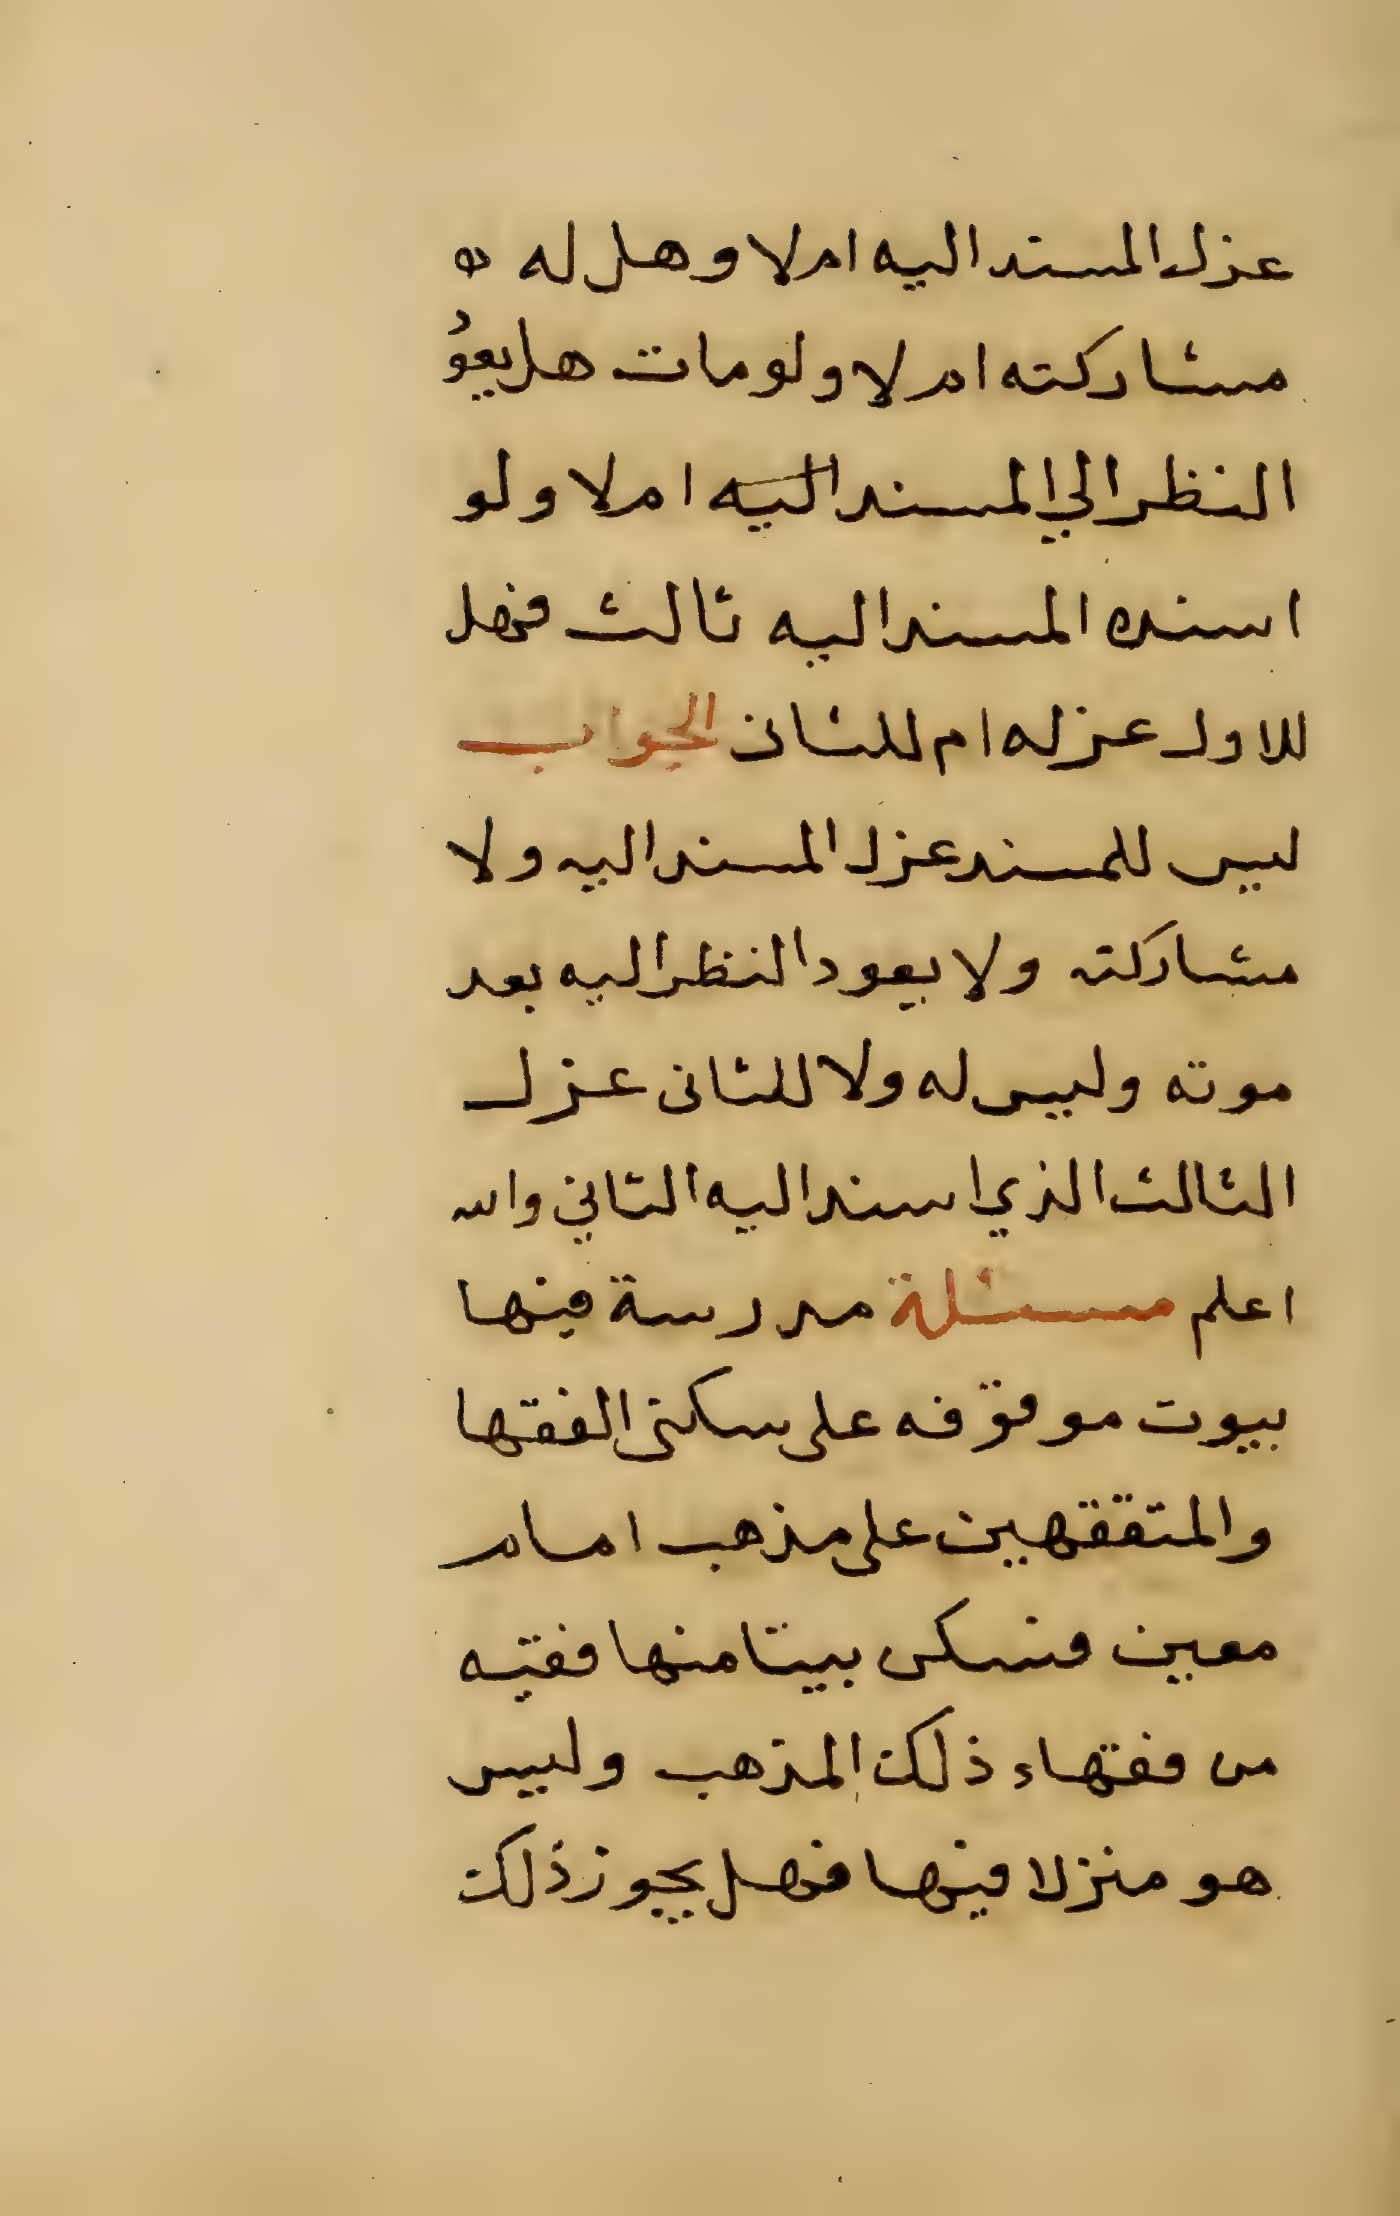 عزل المسند اليه ام لا وهل له
مشاركته ام لا ولو مات هل يعود
النظر الي المسند اليه ام لا ولو
اسنده المسند اليه ثالث فهل
للاول عزله ام للثانى الجواب
ليس للمسند عزل المسند اليه ولا
مشاركته ولا يعود النظر اليه بعد
موته وليس له ولا للثانى عزل
الثالث الذي اسند اليه الثاني والله
اعلم مسئلة مدرسة فيها
بيوت موقوفه على سكنى الفقها
والمتفقهين على مذهب امام
معين فسكن بيتا منها فقيه
من فقهاء ذلك المذهب وليس
هو منزلا فيها فهل يجوز ذلك